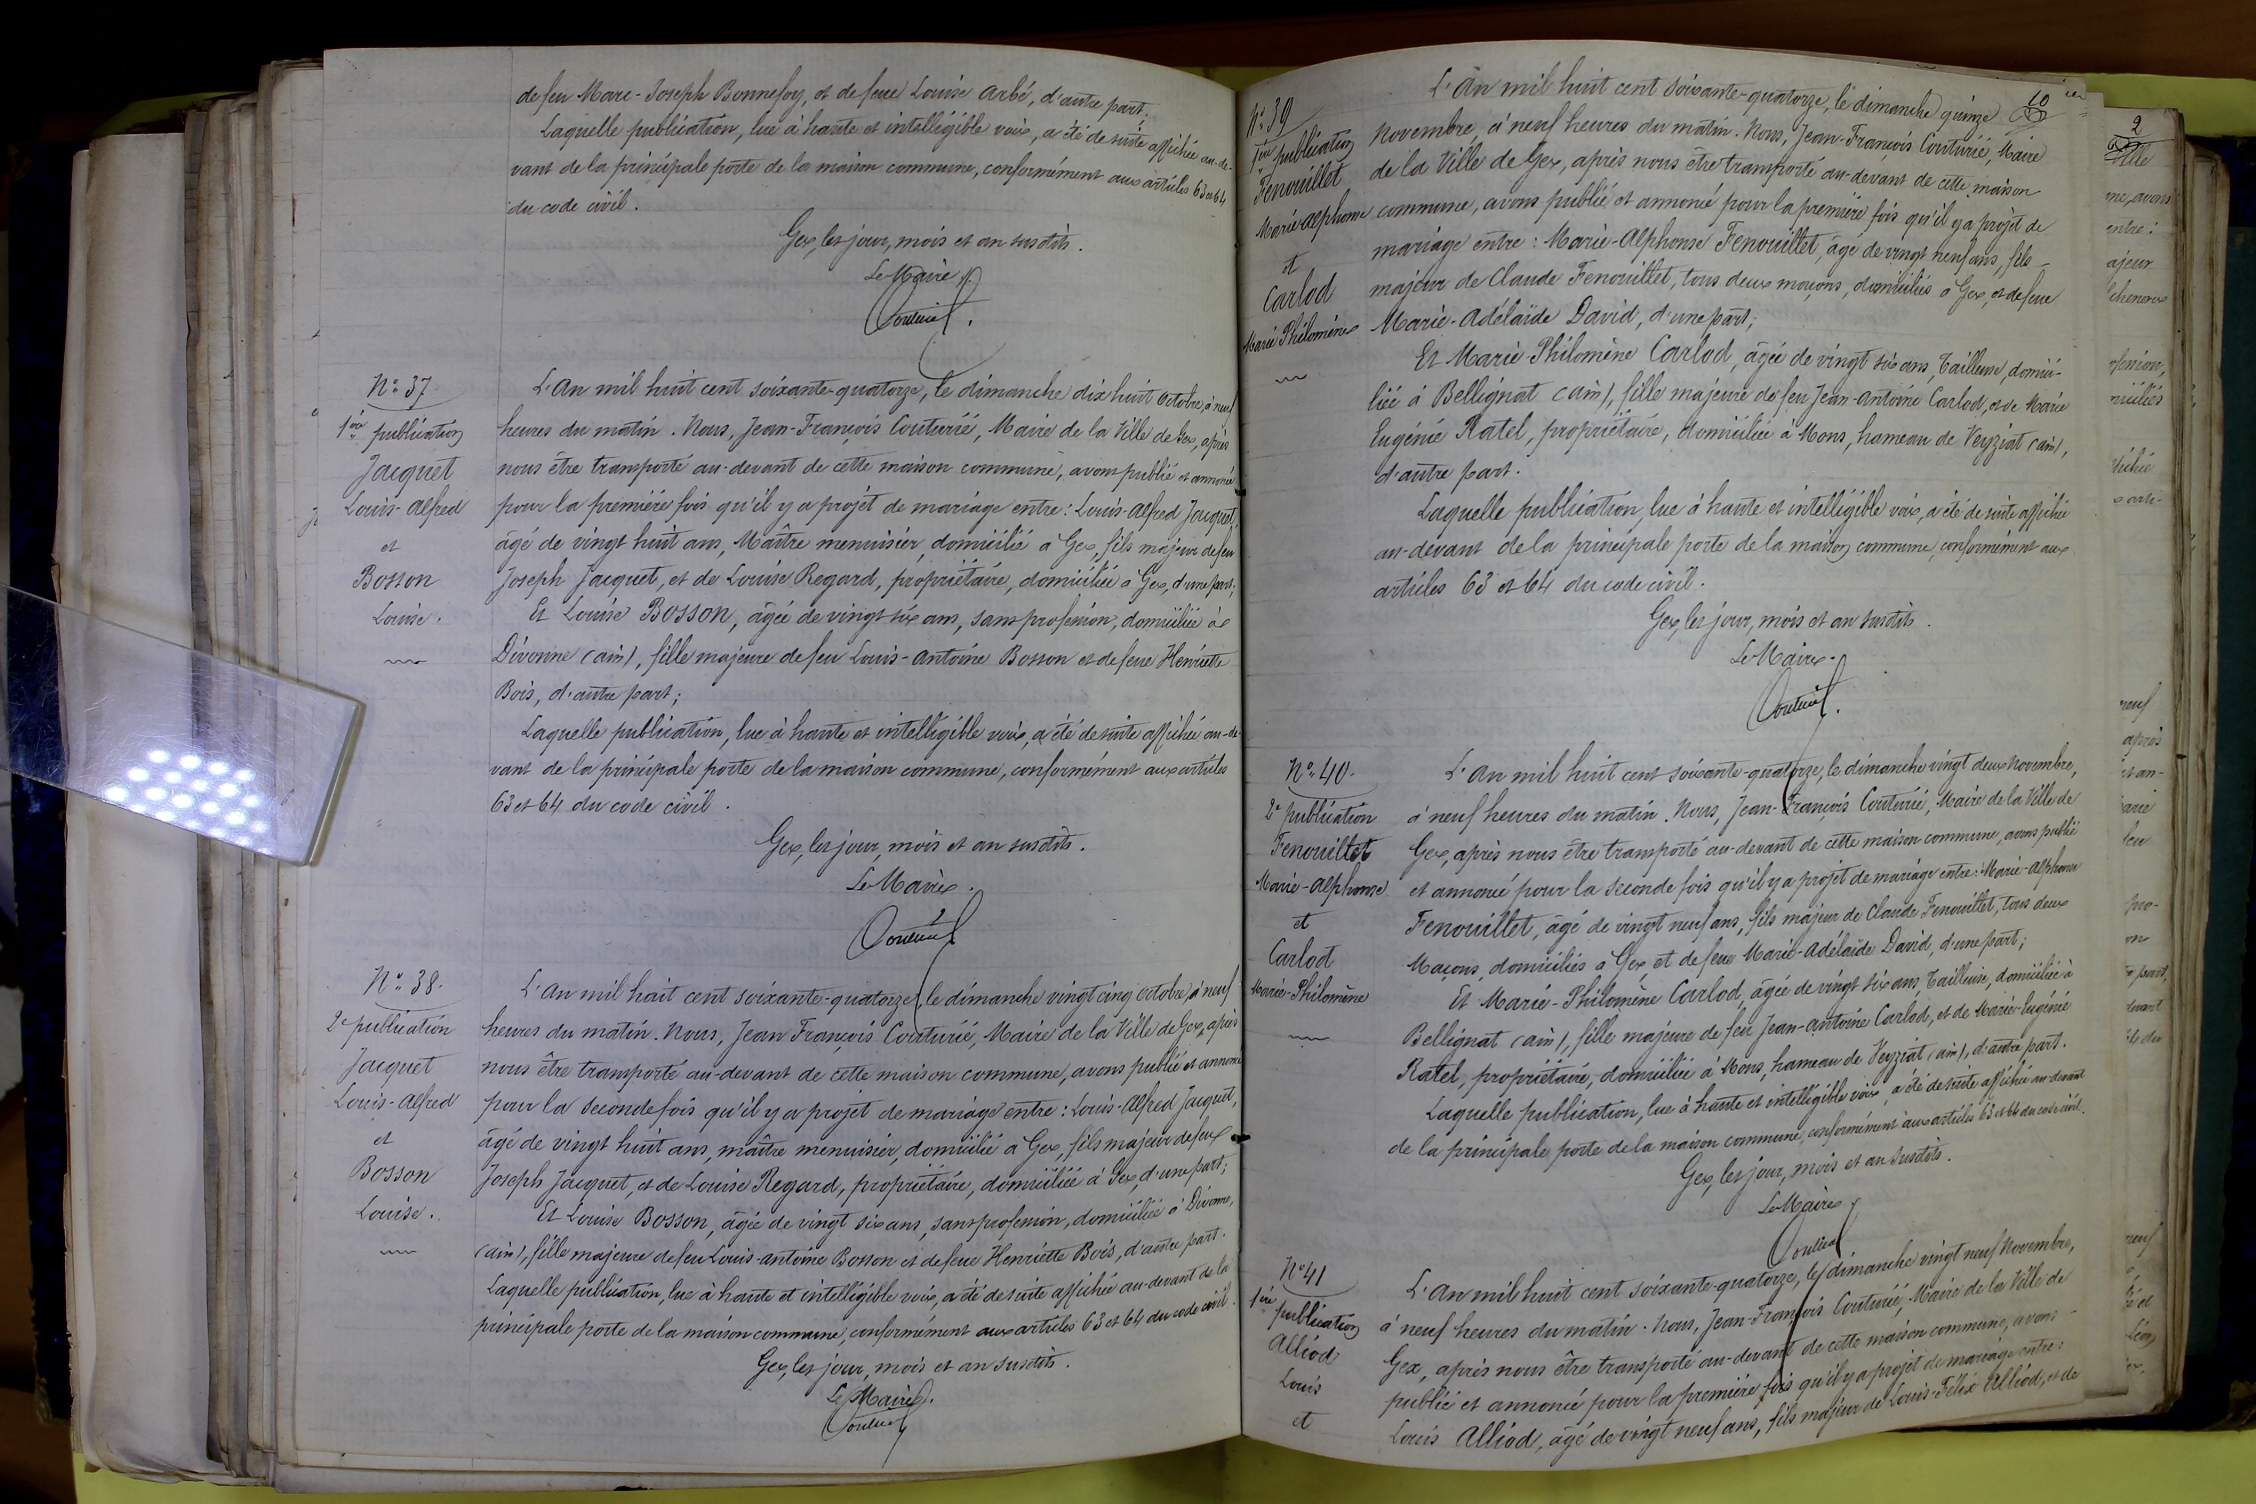 de feu Marc-Joseph Bonnefoy, et de feue Louise Arbé, d'autre part.
Laquelle publication, lue à haute et intelligible voix, a été de suite affichée au-de-
vant de la principale porte de la maison commune, conformément aux articles 63 et 64
du code civil.
Gex, les jour, mois et an susdits.
Le Maire
N° 37.
1ère publication
Jacquet
Louis-Alfred
et
Bosson
Louise.
L'An mil huit cent soixante-quatorze, le dimanche dix huit Octobre, à neuf
heures du matin. Nous, Jean-François Couturié, Maire de la Ville de Gex, après
nous être transporté au-devant de cette maison commune, avons publié et annoncé
pour la première fois qu'il y a projet de mariage entre : Louis-Alfred Jacquet,
âgé de vingt huit ans, Maître menuisier, domicilié à Gex, fils majeur de feu
Joseph Jacquet, et de Louise Regard, propriétaire, domiciliée à Gex, d'une part;
Et Louise Bosson, âgée de vingt six ans, sans profession, domiciliée à
Divonne (ain), fille majeure de feu Louis-Antoine Bosson et de feue Henriette
Bois, d'autre part;
Laquelle publication, lue à haute et intelligible voix, a été de suite affichée au-de-
vant de la principale porte de la maison commune, conformément aux articles
63 et 64 du code civil.
Gex, les jour, mois et an susdits.
Le Maire.
N° 38.
2e publication
Jacquet
Louis-Alfred
et
Bosson
Louise.
L'An mil huit cent soixante-quatorze, le dimanche vingt cinq Octobre, à neuf
heures du matin. Nous, Jean François Couturié, Maire de la Ville de Gex, après
nous être transporté au-devant de cette maison commune, avons publié et annoncé
pour la seconde fois qu'il y a projet de mariage entre : Louis-Alfred Jacquet,
âgé de vingt huit ans, maître menuisier, domicilié à Gex, fils majeur de feu
Joseph Jacquet, et de Louise Regard, propriétaire, domiciliée à Gex, d'une part;
Et Louise Bosson, âgée de vingt six ans, sans profession, domiciliée à Divonne,
(ain), fille majeure de feu Louis-Antoine Bosson et de feue Henriette Bois, d'autre part.
Laquelle publication, lue à haute et intelligible voix, a été de suite affichée au-devant de la
principale porte de la maison commune, conformément aux articles 63 et 64 du code civil.
Gex, les jour, mois et an susdits.
Le Maire.
10
N° 39
1ère publication
Fenouillet
Marie-Alphonse
et
Carlod
Marie Philomène
L'An mil huit cent soixante-quatorze, le dimanche quinze
Novembre à neuf heures du matin. Nous, Jean-François Couturié, Maire
de la Ville de Gex, après nous être transporté au-devant de cette maison
commune, avons publié et annoncé pour la première fois qu'il y a projet de
mariage entre : Marie-Alphonse Fenouillet, âgé de vingt neuf ans, fils
majeur de Claude Fenouillet, tous deux maçons, domiciliés à Gex, et de feue
Marie-Adélaïde David, d'une part;
Et Marie-Philomène Carlod, âgée de vingt six ans, Tailleuse, domici-
liée à Bellignat (ain), fille majeure de feu Jean-Antoine Carlod, et de Marie
Eugénie Ratel, propriétaire, domiciliée à Mons, hameau de Veyziat (ain),
d'autre part.
Laquelle publication, lue à haute et intelligible voix, a été de suite affichée
au-devant de la principale porte de la maison commune, conformément aux
articles 63 et 64 du code civil.
Gex, les jour, mois et an susdits.
Le Maire.
N° 40.
2e publication
Fenouillet
Marie-Alphonse
et
Carlod
Marie-Philomène
L'An mil huit cent soixante-quatorze, le dimanche vingt deux Novembre,
à neuf heures du matin. Nous, Jean-François Couturié, Maire de la Ville de
Gex, après nous être transporté au-devant de cette maison commune, avons publié
et annoncé pour la seconde fois qu'il y a projet de mariage entre : Marie-Alphonse
Fenouillet, âgé de vingt neuf ans, fils majeur de Claude Fenouillet, tous deux
Maçons, domiciliés à Gex, et de feue Marie-Adélaïde David, d'une part;
Et Marie-Philomène Carlod, âgée de vingt six ans, Tailleuse, domiciliée à
Bellignat (ain), fille majeure de feu Jean-Antoine Carlod, et de Marie-Eugénie
Ratel, propriétaire, domiciliée à Mons, hameau de Veyziat (ain), d'autre part.
Laquelle publication, lue à haute et intelligible voix, a été de suite affichée au-devant
de la principale porte de la maison commune, conformément aux articles 63 et 64 du code civil.
Gex, les jour, mois et an susdits.
Le Maire
N° 41
1ère publication
Alliod
Louis
et
L'An mil huit cent soixante-quatorze, le dimanche vingt neuf Novembre,
à neuf heures du matin. Nous, Jean-François Couturié, Maire de la Ville de
Gex, après nous être transporté au-devant de cette maison commune, avons
publié et annoncé pour la première fois qu'il y a projet de mariage entre :
Louis Alliod, âgé de vingt neuf ans, fils majeur de Louis-Félix Alliod, et de
2